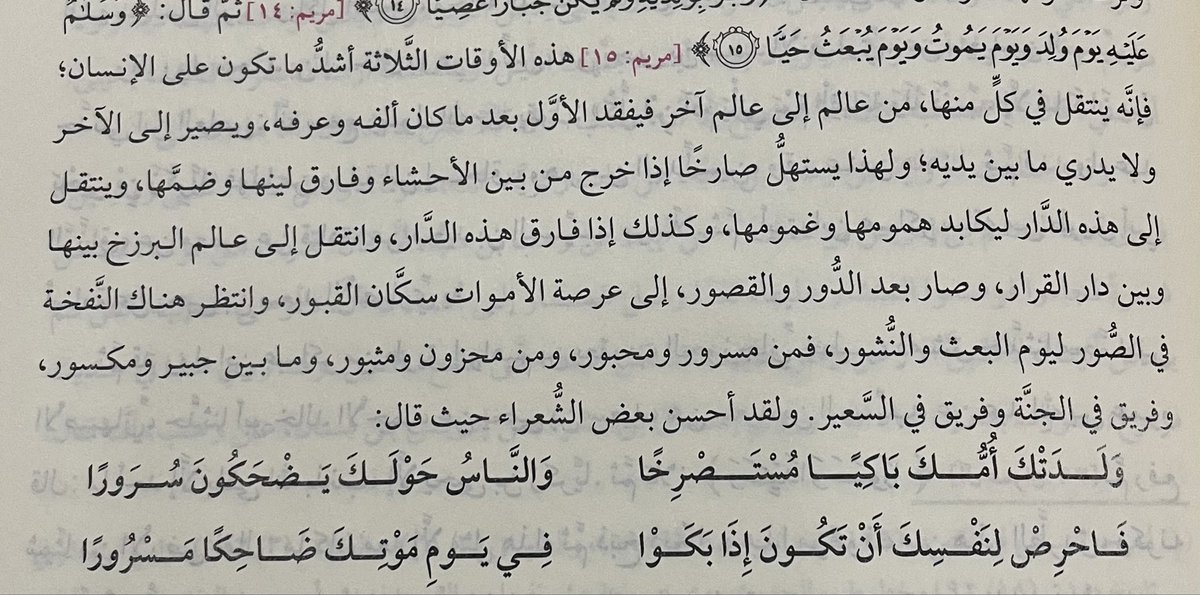 جبارا عصيا ١٤﴾ [مريم: ١٤] ثم قال: ﴿وسلام
عَلَيْهِ يَوْمَ وُلِدَ وَيَوْمَ يَمُوتُ وَيَوْمَ يُبْعَثُ حَيًّا ١٥﴾ [مريم: ١٥] هذه الأوقات الثَّلاثة أشدُّ ما تكون على الإنسان؛
فإنَّه ينتقل في كلٍّ منها، من عالم إلى عالم آخر فيفقد الأوَّل بعد ما كان ألفه وعرفه، ويصير إلى الآخر
ولا يدري ما بين يديه؛ ولهذا يستهلُّ صارخًا إذا خرج من بين الأحشاء وفارق لينها وضمَّها، وينتقل
إلى هذه الدَّار ليكابد همومها وغمومها، وكذلك إذا فارق هذه الدَّار، وانتقل إلى عالم البرزخ بينها
وبين دار القرار، وصار بعد الدُّور والقصور، إلى عرصة الأموات سكَّان القبور، وانتظر هناك النَّفخة
في الصُّور ليوم البعث والنُّشور، فمن مسرور ومحبور، ومن محزون ومثبور، وما بين جبير ومكسور،
وفريق في الجنَّة وفريق في السَّعير. ولقد أحسن بعض الشُّعراء حيث قال:
وَلَدَتْكَ أُمُّكَ بَاكِيًا مُسْتَصْرِخًا وَالنَّاسُ حَوْلَكَ يَضْحَكُونَ سُرَورًا
فَاحْرِصْ لِنَفْسِكَ أَنْ تَكُونَ إِذَا بَكَوْا فِي يَومِ مَوْتِكَ ضَاحِكًا مَسْرُورًا